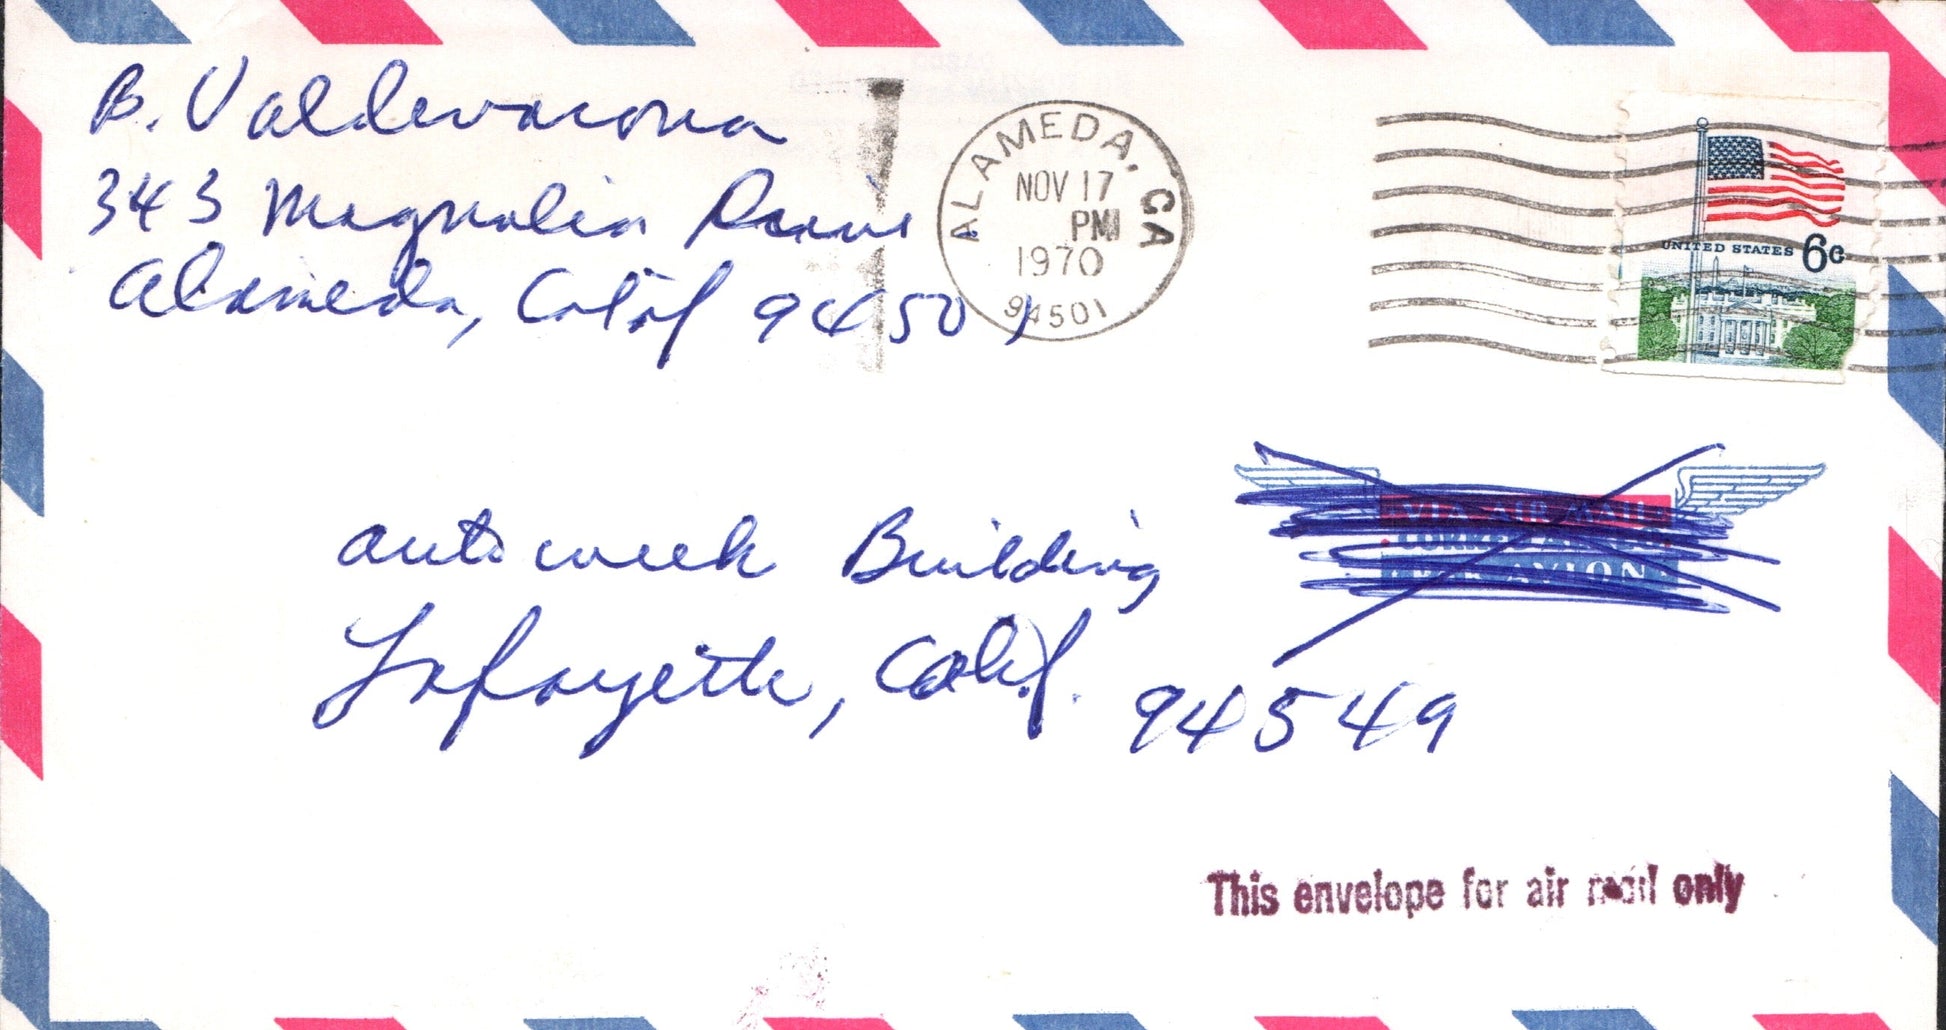 B. Valdevarona
343 Magnolia Drive
Alameda, Calif 94501
ALAMEDA, CA
NOV 17
PM
1970
94501
UNITED STATES 6c
autoweek Building
Lafayette, Calif. 94549
VIA AIR MAIL
CORREO AEREO
PAR AVION
This envelope for air mail only